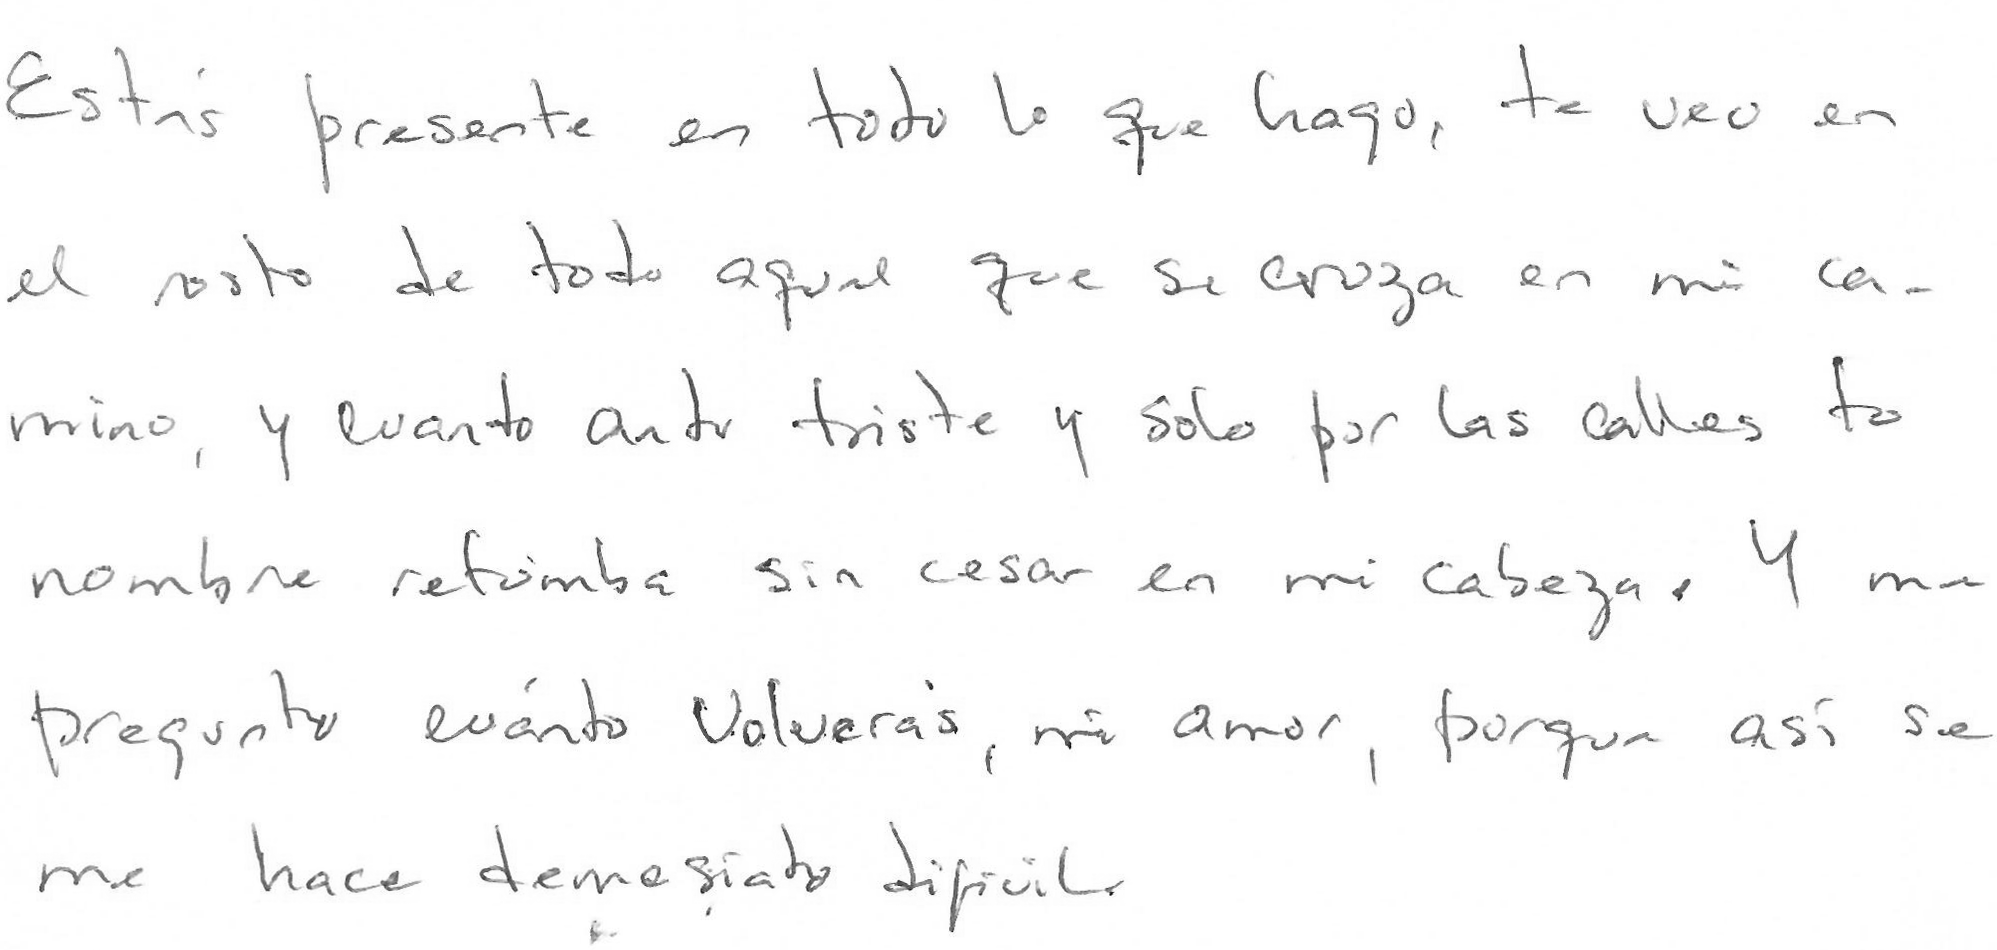 Estás presente en todo lo que hago, te veo en
el rostro de todo aquel que se cruza en mi ca-
mino, y cuanto ando triste y solo por las calles tu
nombre retumba sin cesar en mi cabeza. Y me
pregunto cuánto volverás, mi amor, porque así se
me hace demasiado difícil.